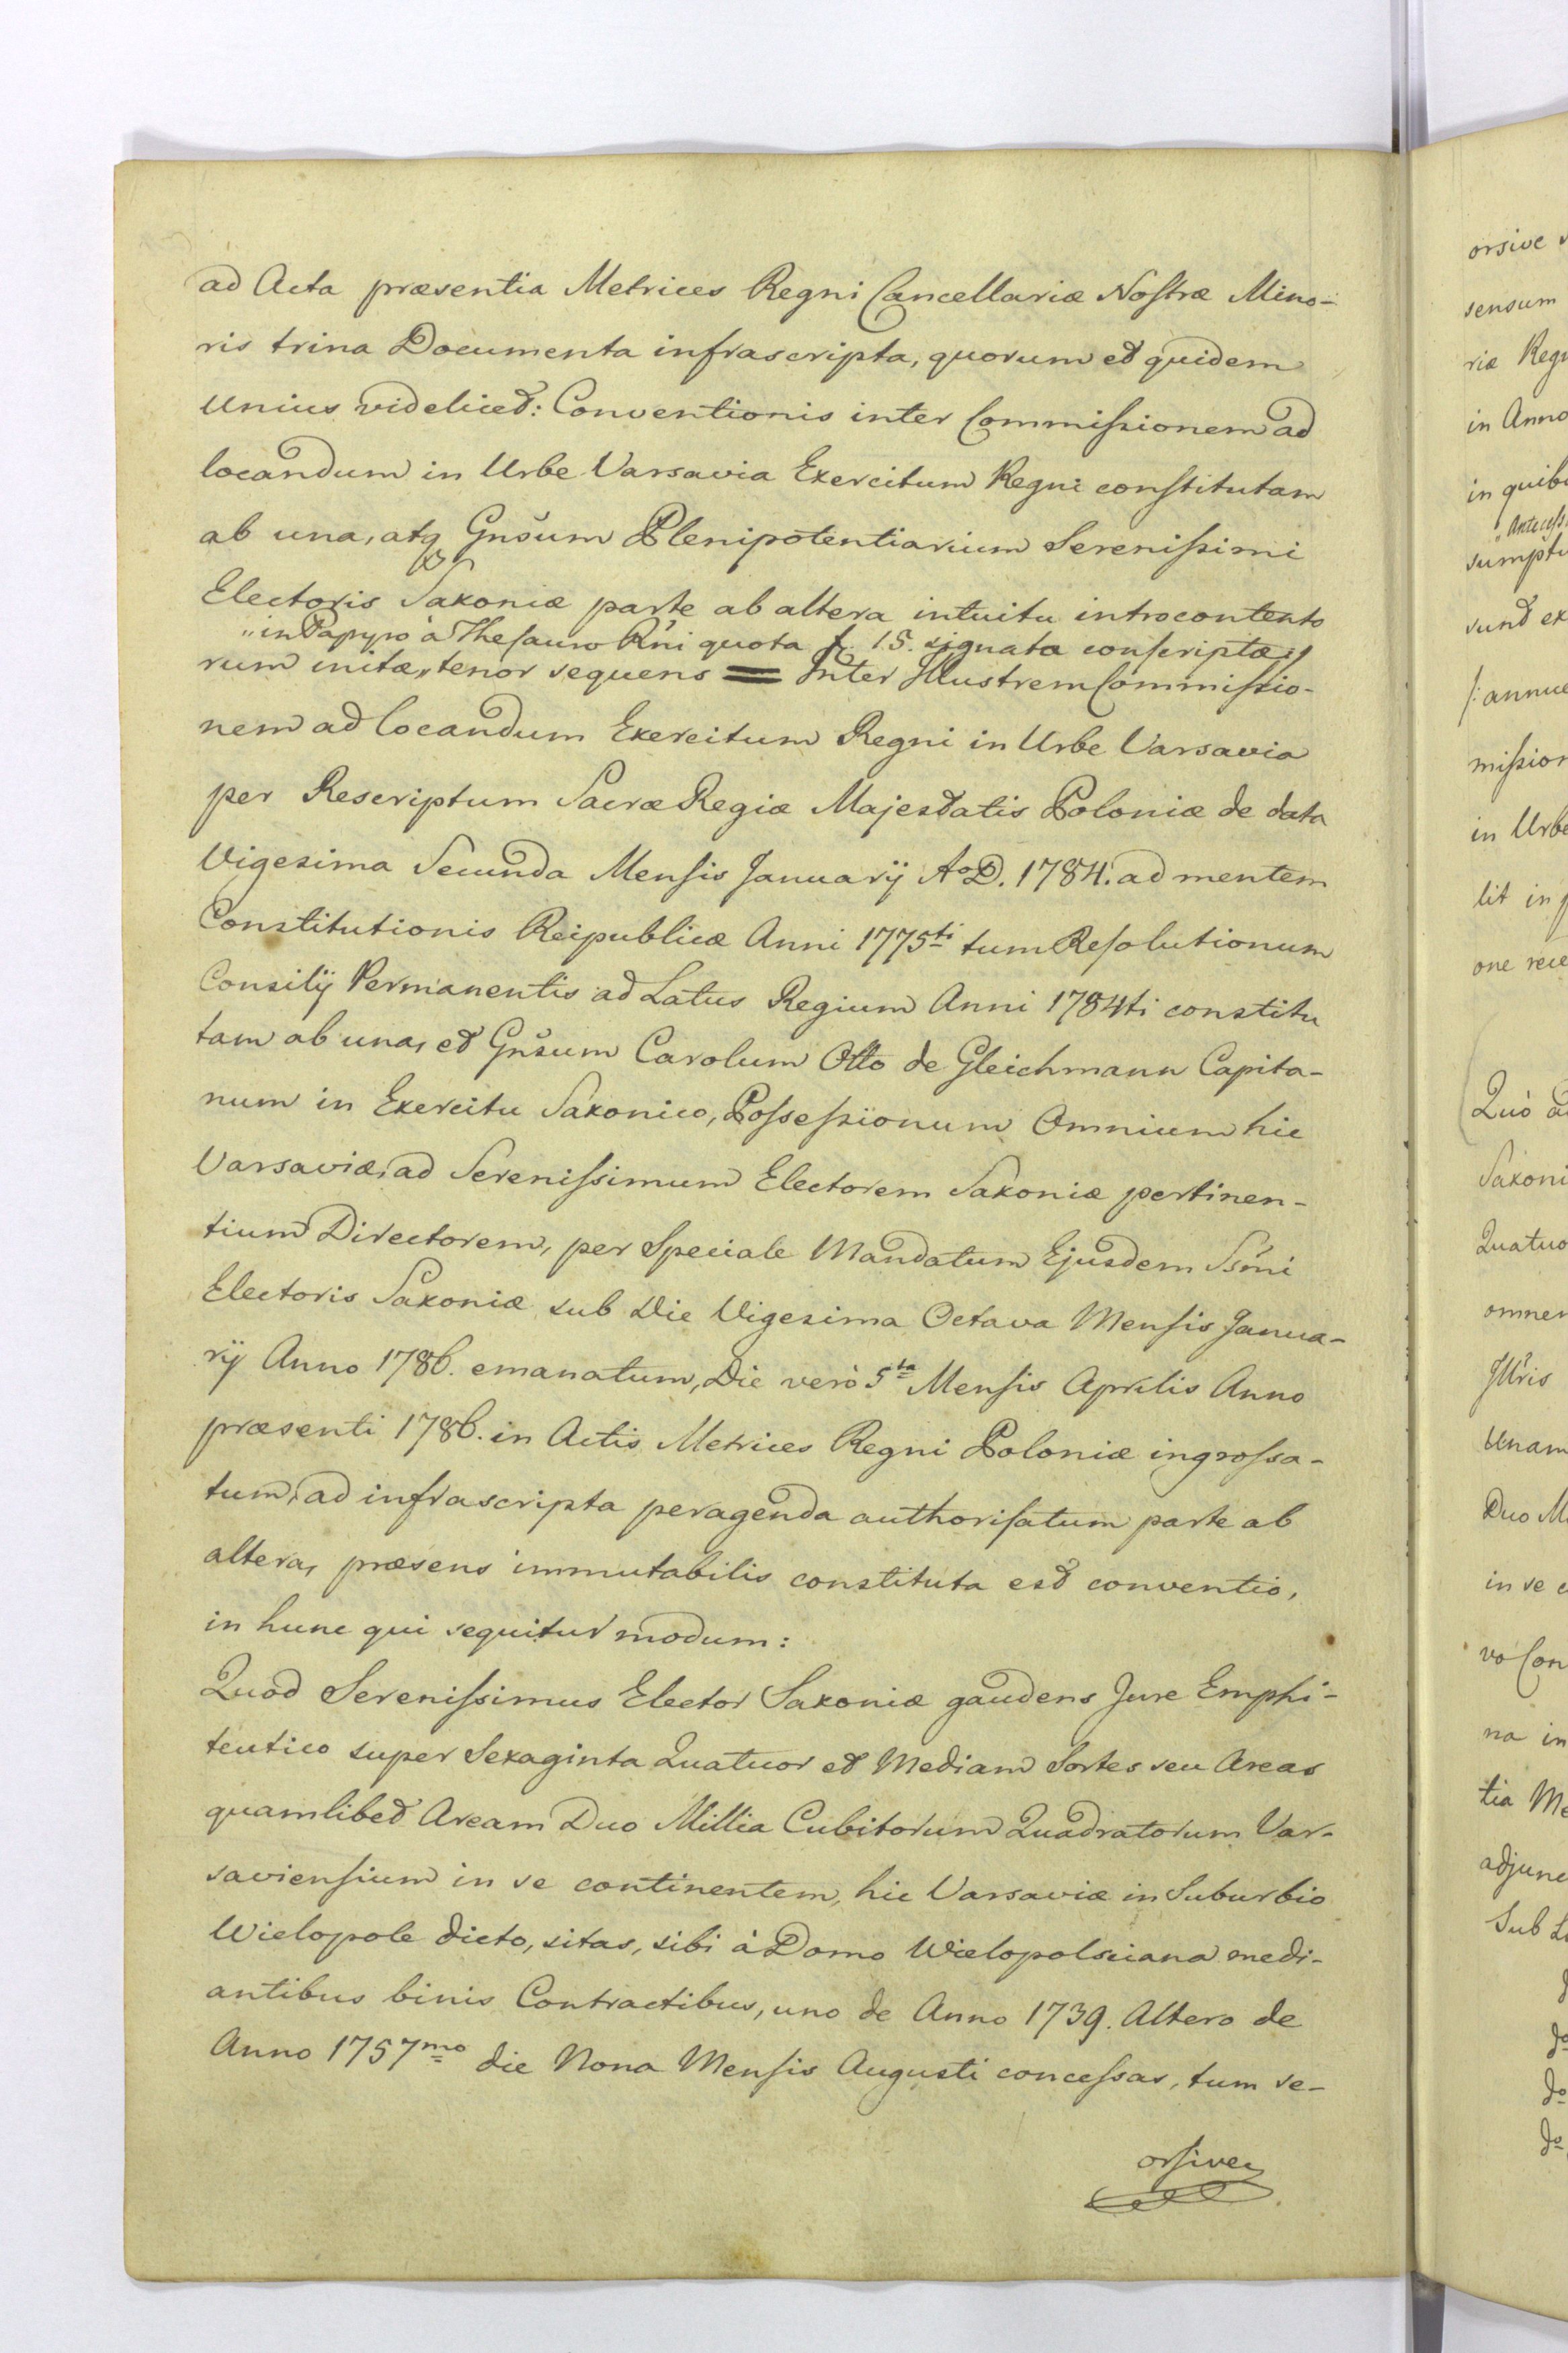 ad Acta præsentia Metrices Regni Cancellariæ Nostræ Mino-
ris trina Documenta infrascripta, quorum et quidem
unius videlicet: Conventionis inter Commissionem ad
locandum in Urbe Varsavia Exercitum Regni constitutam
ab una, atq Gnsum Plenipotentiarium Serenissimi
Electoris Saxoniæ parte ab altera intuitu introcontento
"in Papyro à Thesauro Rni quota f. 15. signata conscriptæ
rum initæ, tenor sequens = Inter Illustrem Commissio-
nem ad locandum Exercitum Regni in Urbe Varsavia
per Rescriptum Sacræ Regiæ Majestatis Poloniæ de data
Vigesima Secunda Mensis Januarij Ao D. 1784. ad mentem
Constitutionis Reipublicæ Anni 1775ti tum Resolutionum
Consilij Permanentis ad Latus Regium Anni 1784ti constitu
tam ab una, et Gnsum Carolum Otto de Gleichmann Capita-
num in Exercitu Saxonico, Possessionum Omnium hic
Varsaviæ, ad Serenissimum Electorem Saxoniæ pertinen-
tium Directorem, per Speciale Mandatum Ejusdem Ssmi
Electoris Saxoniæ sub Die Vigesima Octava Mensis Janua-
rij Anno 1786. emanatum, Die verò 5ta Mensis Aprilis Anno
præsenti 1786. in Actis Metrices Regni Poloniæ ingrossa-
tum, ad infrascripta peragenda authorisatum parte ab
altera, præsens immutabilis constituta est conventio,
in hunc qui sequitur modum:
Quod Serenissimus Elector Saxoniæ gaudens Jure Emphi-
teutico super Sexaginta Quatuor et Mediam Sortes seu Areas
quamlibet Aream Duo Millia Cubitorum Quadratorum Var-
saviensium in se continentem, hic Varsaviæ in Suburbio
Wielopole dicto, sitas, sibi à Domo Wielopolsciana medi-
antibus binis Contractibus, uno de Anno 1739. Altero de
Anno 1757mo die Nona Mensis Augusti concessas, tum se-
orsive
orsive
sensum
riæ Regn
in Anno
in quib
sumpt
sunt ex
/: annue
mission
in Urbe
lit in
one rece
Quò
Saxoni
Quatuo
omnem
Unam
Duo M
in se c
vo Con
na in
tia Me
adjunc
Sub L
do
do
do